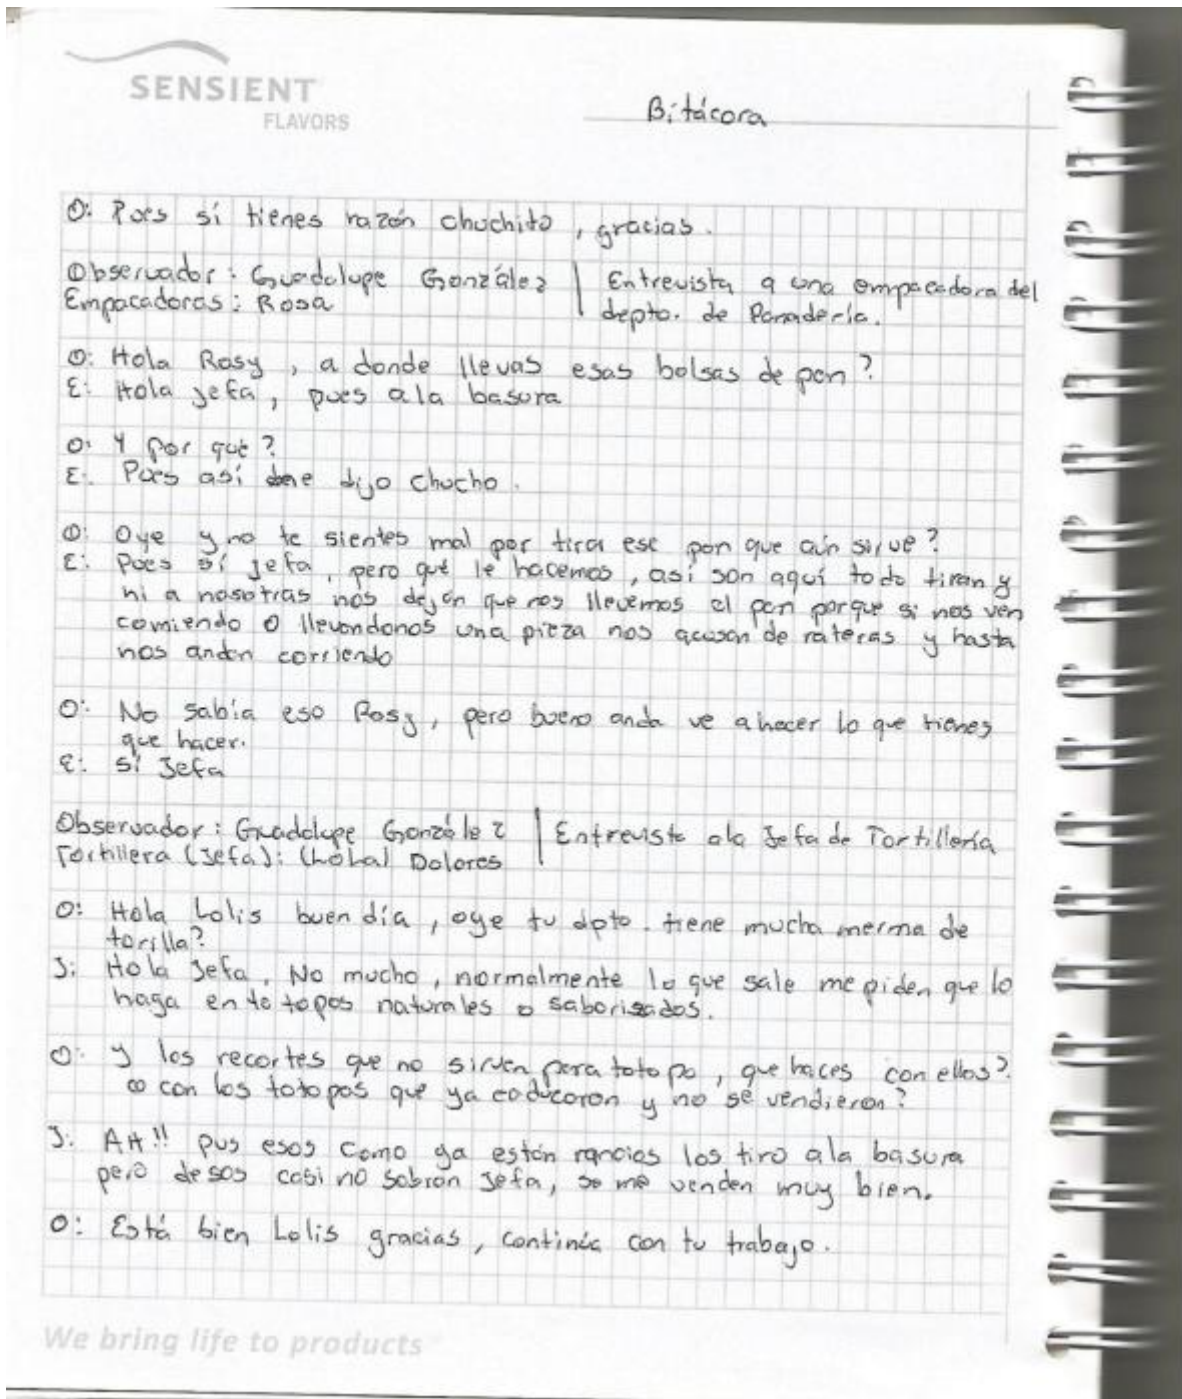 SENSIENT
FLAVORS
Bitácora
O: Pues sí tienes razón chuchito, gracias.
Observador: Guadalupe González | Entrevista a una empacadora del
Empacadoras: Rosa | depto. de Panadería.
O: Hola Rosy, a donde llevas esas bolsas de pan?
E: Hola jefa, pues ala basura
O: Y por qué?
E: Pues así me dijo chucho.
O: Oye y no te sientes mal por tirar ese pan que aún sirve?
E: Pues sí jefa, pero qué le hacemos, así son aquí todo tiran y
ni a nosotras nos dejan que nos llevemos el pan porque si nos ven
comiendo o llevandonos una pieza nos acusan de rateras y hasta
nos andan corriendo
O: No sabía eso Rosy, pero bueno anda ve a hacer lo que tienes
que hacer.
E: Sí Jefa
Observador: Guadalupe González | Entrevista ala Jefa de Tortillería
Tortillera (Jefa): Dolores
O: Hola Lolis buen día, oye tu dpto. tiene mucha merma de
torilla?
J: Hola Jefa. No mucho, normalmente lo que sale me piden que lo
haga en totopos naturales o saborisados.
O: y los recortes que no sirven para totopo, que haces con ellos?
o con los totopos que ya caducaron y no se vendieron?
J: AH!! pus esos como ya están rancios los tiro ala basura
pero desos casi no sobran Jefa, se me venden muy bien.
O: Está bien Lolis gracias, continúa con tu trabajo.
We bring life to products